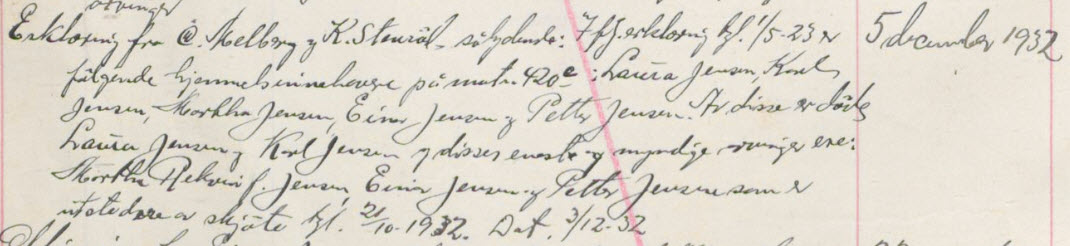 arvinger
Erklæring fra C. Melberg og K. Stensöl, sålydende: Iflg. erklæring tgl. 1/5-23 er
følgende hjemmelsinnehavere på matr. 420e: Laura Jensen, Karl
Jensen, Martha Jensen, Einar Jensen og Petter Jensen. Av disse er døde
Laura Jensen og Karl Jensen og disses eneste og myndige arvinger ere:
Martha f. Jensen, Einar Jensen og Petter Jensen som er
utstedere av skjöte tgl. 21/10-1932. Dat. 3/12-32
5 december 1932